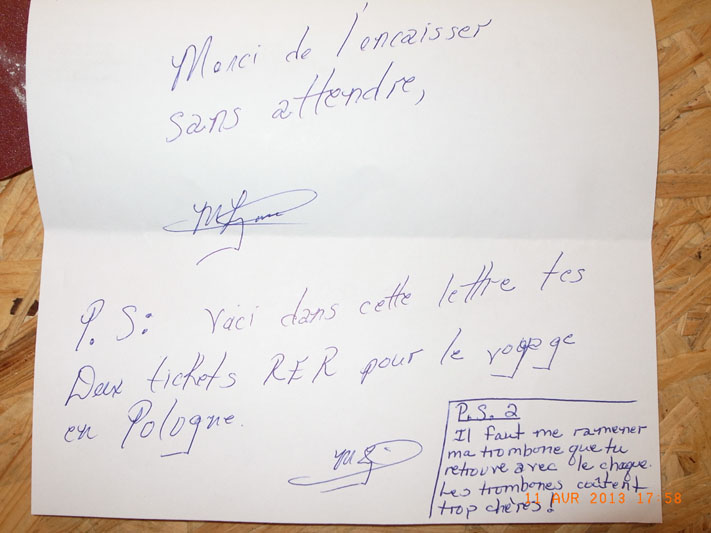 Merci de l'encaisser
sans attendre,
P.S: Voici dans cette lettre tes
Deux tickets RER pour le voyage
en Pologne.
P.S. 2
Il faut me ramener
ma trombone que tu
retrouve avec le chaque.
Les trombones coûtent
trop chères!
11 AVR 2013 17:58